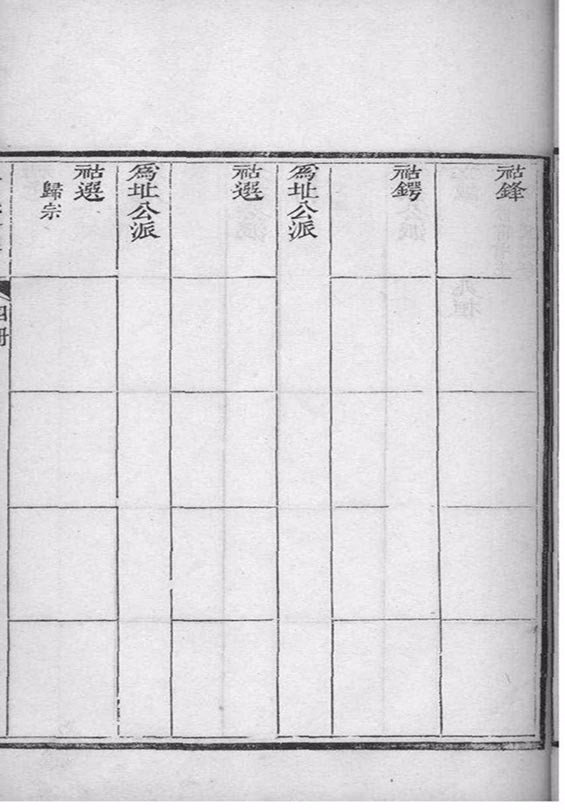 祜鋒
祜鍔
為址公派
祜選
為址公派
祜選
歸宗
四冊